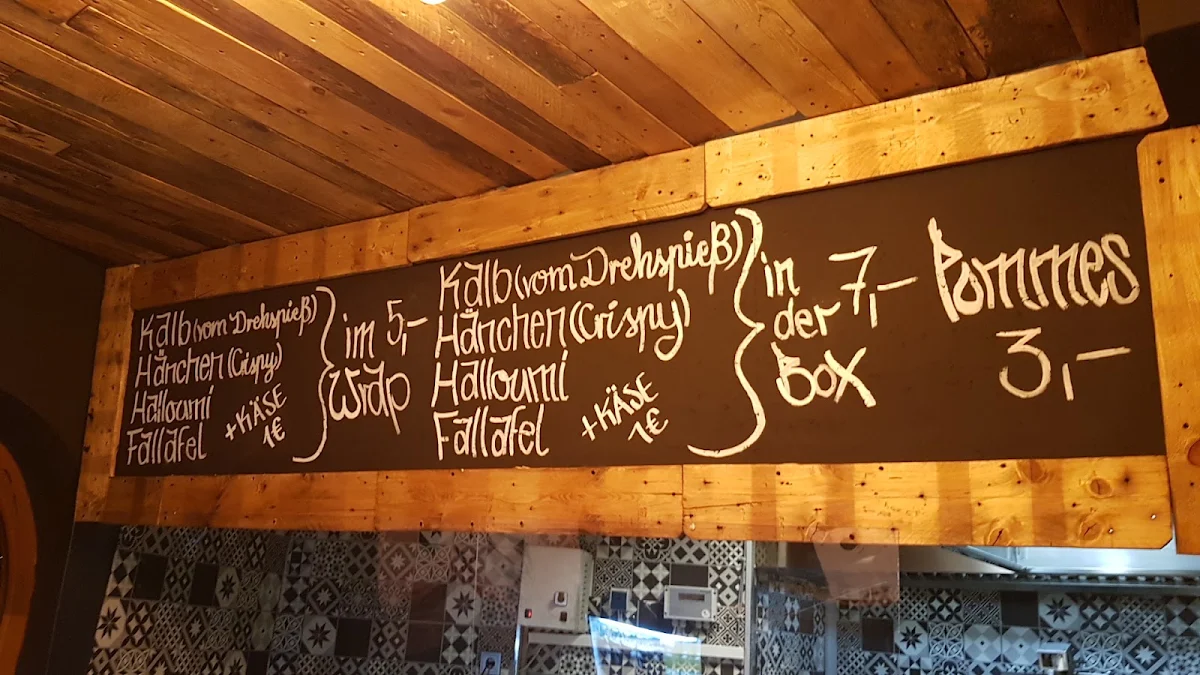 Kalb (vom Drehspieß)
Hänchen (Crispy)
Halloumi
Fallafel
+KÄSE
1€
im 5,-
Wrap
Kalb (vom Drehspieß)
Hänchen (Crispy)
Halloumi
Fallafel
+KÄSE
1€
in
der 7,-
Box
Pommes
3,-